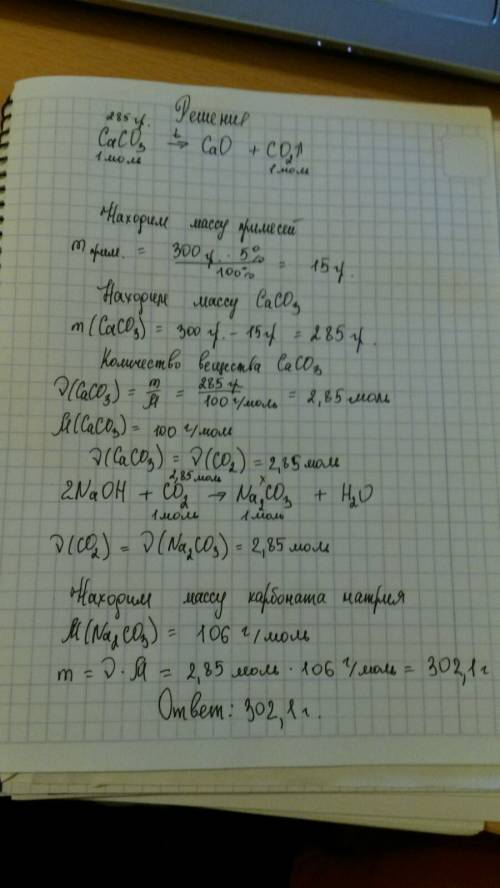 Решение
285 г.
CaCO₃ →ᵗ CaO + CO₂↑
1 моль 1 моль
Находим массу примесей
m прим. = 300 г. · 5% / 100% = 15 г.
Находим массу CaCO₃
m(CaCO₃) = 300 г. - 15 г = 285 г.
Количество вещества CaCO₃
ν(CaCO₃) = m/M = 285 г / 100 г/моль = 2,85 моль
M(CaCO₃) = 100 г/моль
ν(CaCO₃) = ν(CO₂) = 2,85 моль
2,85 моль x
2NaOH + CO₂ → Na₂CO₃ + H₂O
1 моль 1 моль
ν(CO₂) = ν(Na₂CO₃) = 2,85 моль
Находим массу карбоната натрия
M(Na₂CO₃) = 106 г/моль
m = ν · M = 2,85 моль · 106 г/моль = 302,1 г
Ответ: 302,1 г.